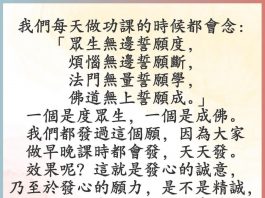 我們每天做功課的時候都會念：
「眾生無邊誓願度，
煩惱無邊誓願斷，
法門無量誓願學，
佛道無上誓願成。」
一個是度眾生，一個是成佛。
我們都發過這個願，因為大家
做早晚課時都會發，天天發。
效果呢？這就是發心的誠意，
乃至於發心的願力，是不是精誠，